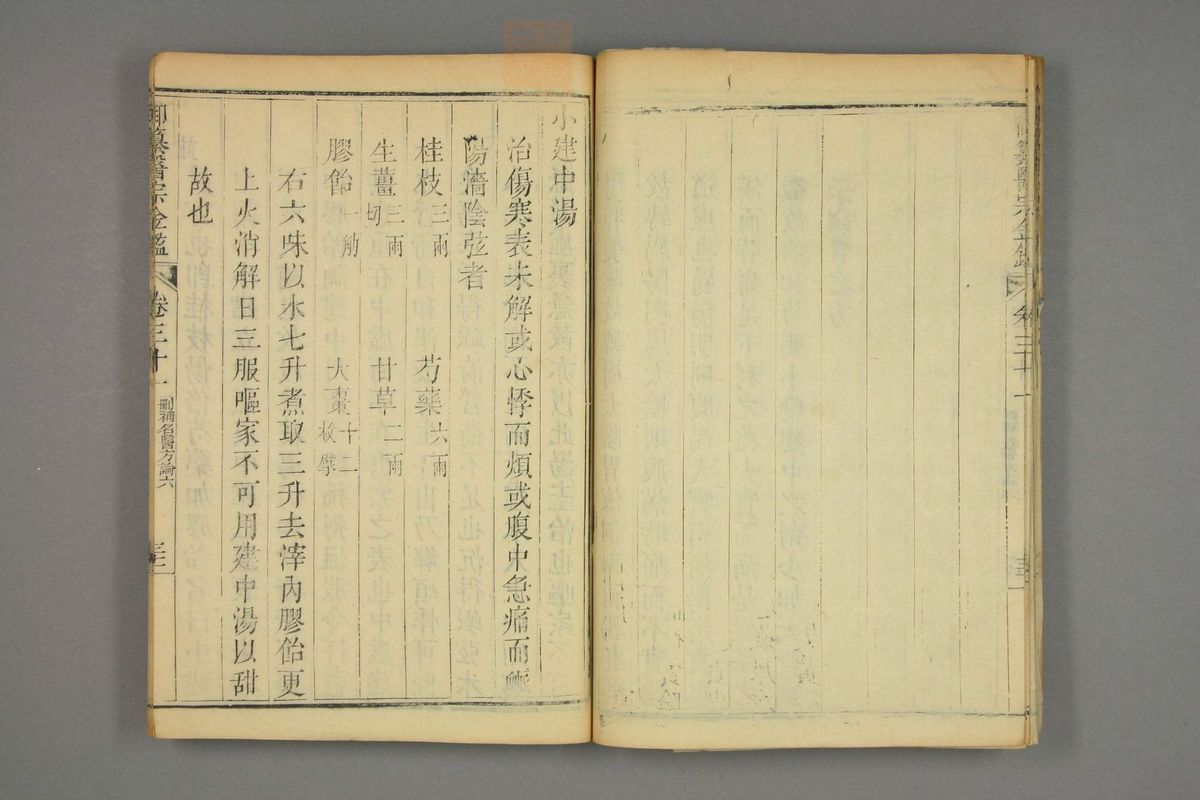 御纂醫宗金鑑
卷三十一
小建中湯
治傷寒表未解或心悸而煩或腹中急痛而脈
陽濇陰弦者
桂枝三兩 芍藥六兩
生薑三兩切 甘草二兩
膠飴一觔 大棗十二枚擘
右六味以水七升煮取三升去滓內膠飴更
上火消解日三服嘔家不可用建中湯以甜
故也
御纂醫宗金鑑 卷三十一 刪補名醫方論六